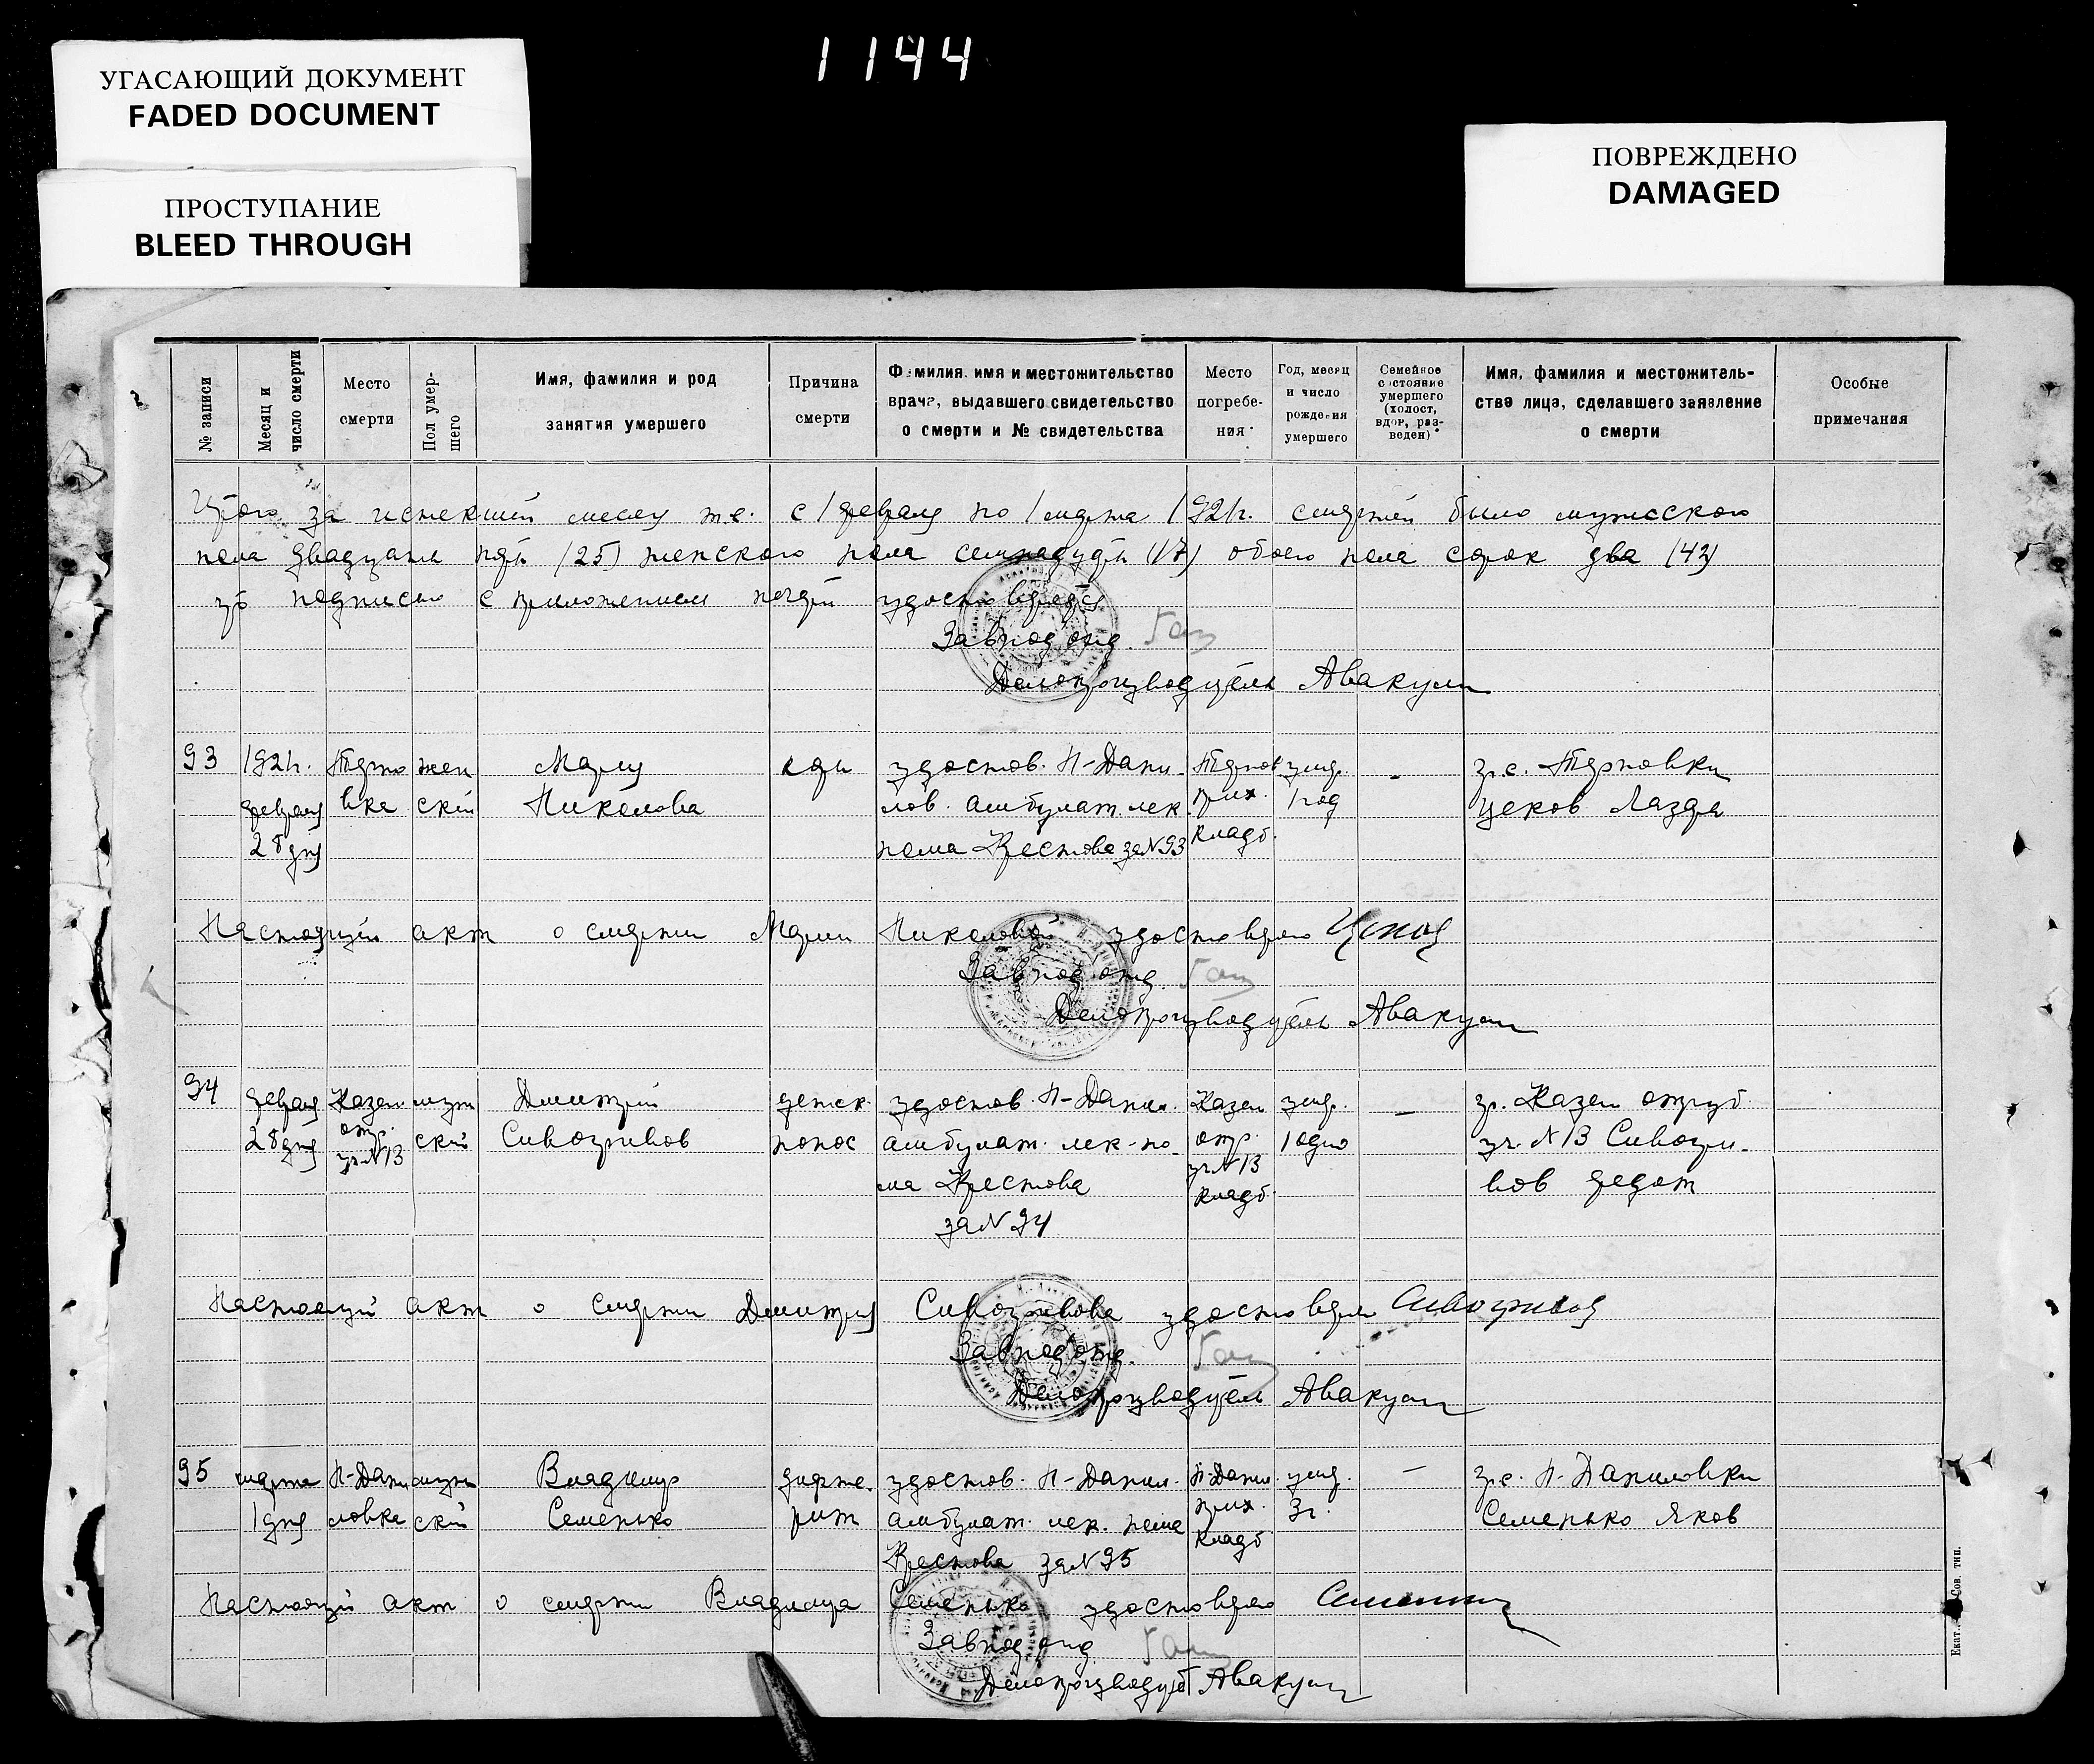 1144
УГАСАЮЩИЙ ДОКУМЕНТ
FADED DOCUMENT
ПРОСТУПАНИЕ
BLEED THROUGH
ПОВРЕЖДЕНО
DAMAGED
№ записи
Месяц и
число смерти
Место
смерти
Пол умер-
шего
Имя, фамилия и род
занятия умершего
Причина
смерти
Фамилия, имя и местожительство
врача, выдавшего свидетельство
о смерти и № свидетельства
Место
погребе-
ния
Год, месяц
и число
рождения
умершего
Семейное
состояние
умершего
(холост,
вдов, раз-
веден)
Имя, фамилия и местожитель-
ства лица, сделавшего заявление
о смерти
Особые
примечания
Итого за истекший месяц т.е. с 1 февраля по 1 марта 1921г. смертей было мужского
пола двадцать пять (25) женского пола семнадцать (17) обоего пола сорок два (42)
подписью с приложением печати удостоверяется
Завпод отд.
Делопроизводитель Авакум
93
1921г.
февраля
28 дня
Терно
вка
жен
ский
Мария
Николова
корь
удостов. Н-Дани-
лов. амбулат. лек.
пома Крестова за N 93
Тернов
прих.
кладб.
умер.
1 год
-
гр. с. Терновки
Цеков Лазарь
Настоящий акт о смерти Марии Николовой удостоверяю Цеков
Завпод отд.
Делопроизводитель Авакум
94
февраля
28 дня
Казен
отр.
уч. N 13
муж
ский
Дмитрий
Сивогривов
детск.
понос
удостов. Н-Данил.
амбулат. лек-по-
ма Крестова
за N 94
Казен
отр.
уч N 13
кладб.
умер.
1 одно
—
гр. Казен отруб.
уч. N 13 Сивогри-
вов Федот
Настоящий акт о смерти Дмитрия Сивогривова удостоверяю Сивогривов
Завпод отд.
Делопроизводитель Авакум
95
марта
1 дня
Н-Дани
ловка
муж
ский
Владимир
Семенько
дифте-
рит
удостов. Н-Данил.
амбулат. лек. пома
Крестова за N 95
Н-Данил.
прих.
кладб
умер.
3г.
—
гр. с. Н-Даниловки
Семенько Яков
Настоящий акт о смерти Владимира Семенько удостоверяю
Завпод отд.
Делопроизводит Авакум
Екат. Сов. тип.